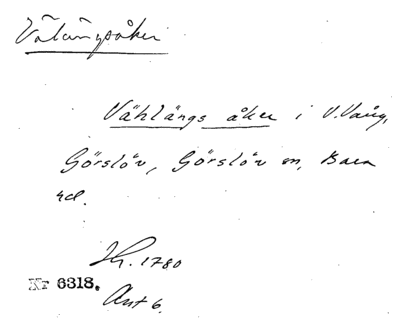 Välängsåker
Vählängs åker i V. Vång,
Görslöv, Görslöv sn, Bara
hd.
Kr. 1780
Nr 6318.
Ant 6.